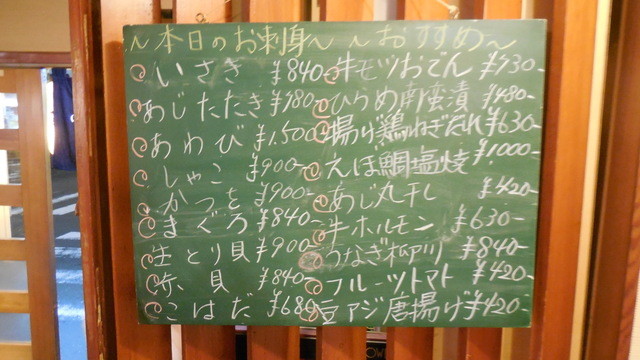 ～本日のお刺身～
いさき ¥840-
あじたたき ¥780-
あわび ¥1.500-
しゃこ ¥900-
かつを ¥900-
まぐろ ¥840-
生とり貝 ¥900-
赤貝 ¥840-
こはだ ¥680-
～おすすめ～
牛モツおでん ¥730-
ひらめ南蛮漬 ¥480-
揚げ鶏ねぎだれ ¥630-
えぼ鯛塩焼 ¥1.000-
あじ丸干し ¥420-
牛ホルモン ¥630-
うなぎ柳川 ¥840-
フルーツトマト ¥420-
豆アジ唐揚げ ¥420-